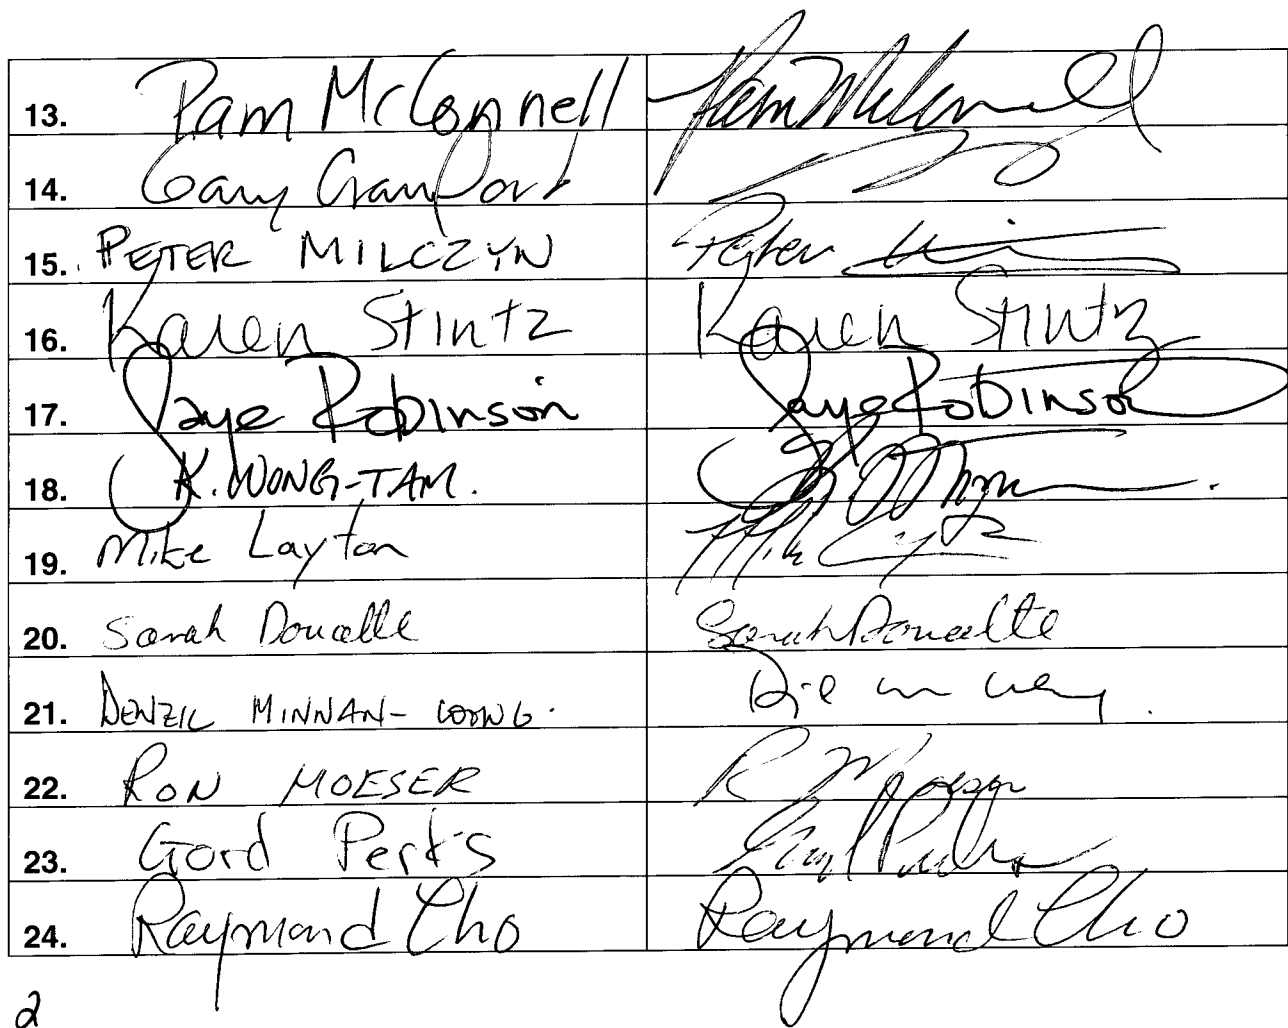 13. Pam McConnell Pam McConnell
14. Gary Crawford
15. PETER MILCZYN Peter
16. Karen Stintz Karen Stintz
17. Jaye Robinson Jaye Robinson
18. K. WONG-TAM.
19. Mike Layton Mike
20. Sarah Doucette Sarah Doucette
21. DENZIL MINNAN-WONG.
22. RON MOESER R Moeser
23. Gord Perks Gord Perks
24. Raymond Cho Raymond Cho
2